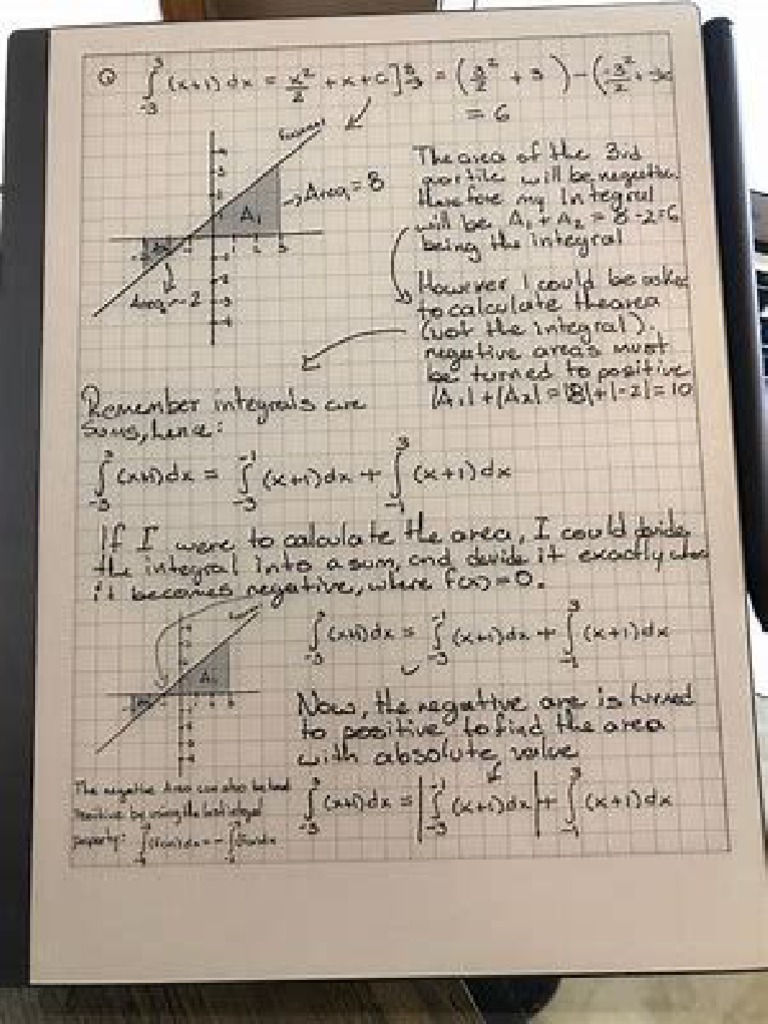 ∫_{-3}^{3} (x+1) dx = x²/2 + x + C ]_{-3}^{3} = (3²/2 + 3) - (-3²/2 + -3)
= 6
4
3
2
1
→ Area₁ = 8
A₁
1 2 3
-1
-2
-3
-4
Area₂ = -2
The area of the 3rd
will be negative
therefore my Integral
will be A₁ + A₂ = 8 - 2 = 6
being the integral
However I could be asked
to calculate the area
(not the integral).
negative areas must
be turned to positive
|A₁| + |A₂| = |8| + |-2| = 10
Remember integrals are
sums, hence:
∫_{-3}^{3} (x+1) dx = ∫_{-3}^{-1} (x+1) dx + ∫_{-1}^{3} (x+1) dx
If I were to calculate the area, I could devide
the integral into a sum, and devide it exactly when
it becomes negative, where f(x) = 0.
A₁
∫_{-3}^{3} (x+1) dx = ∫_{-3}^{-1} (x+1) dx + ∫_{-1}^{3} (x+1) dx
Now, the negative are is turned
to positive to find the area
with absolute value
∫_{-3}^{3} (x+1) dx = |∫_{-3}^{-1} (x+1) dx| + ∫_{-1}^{3} (x+1) dx
The negative Area can also be
positive by using the integral
property: